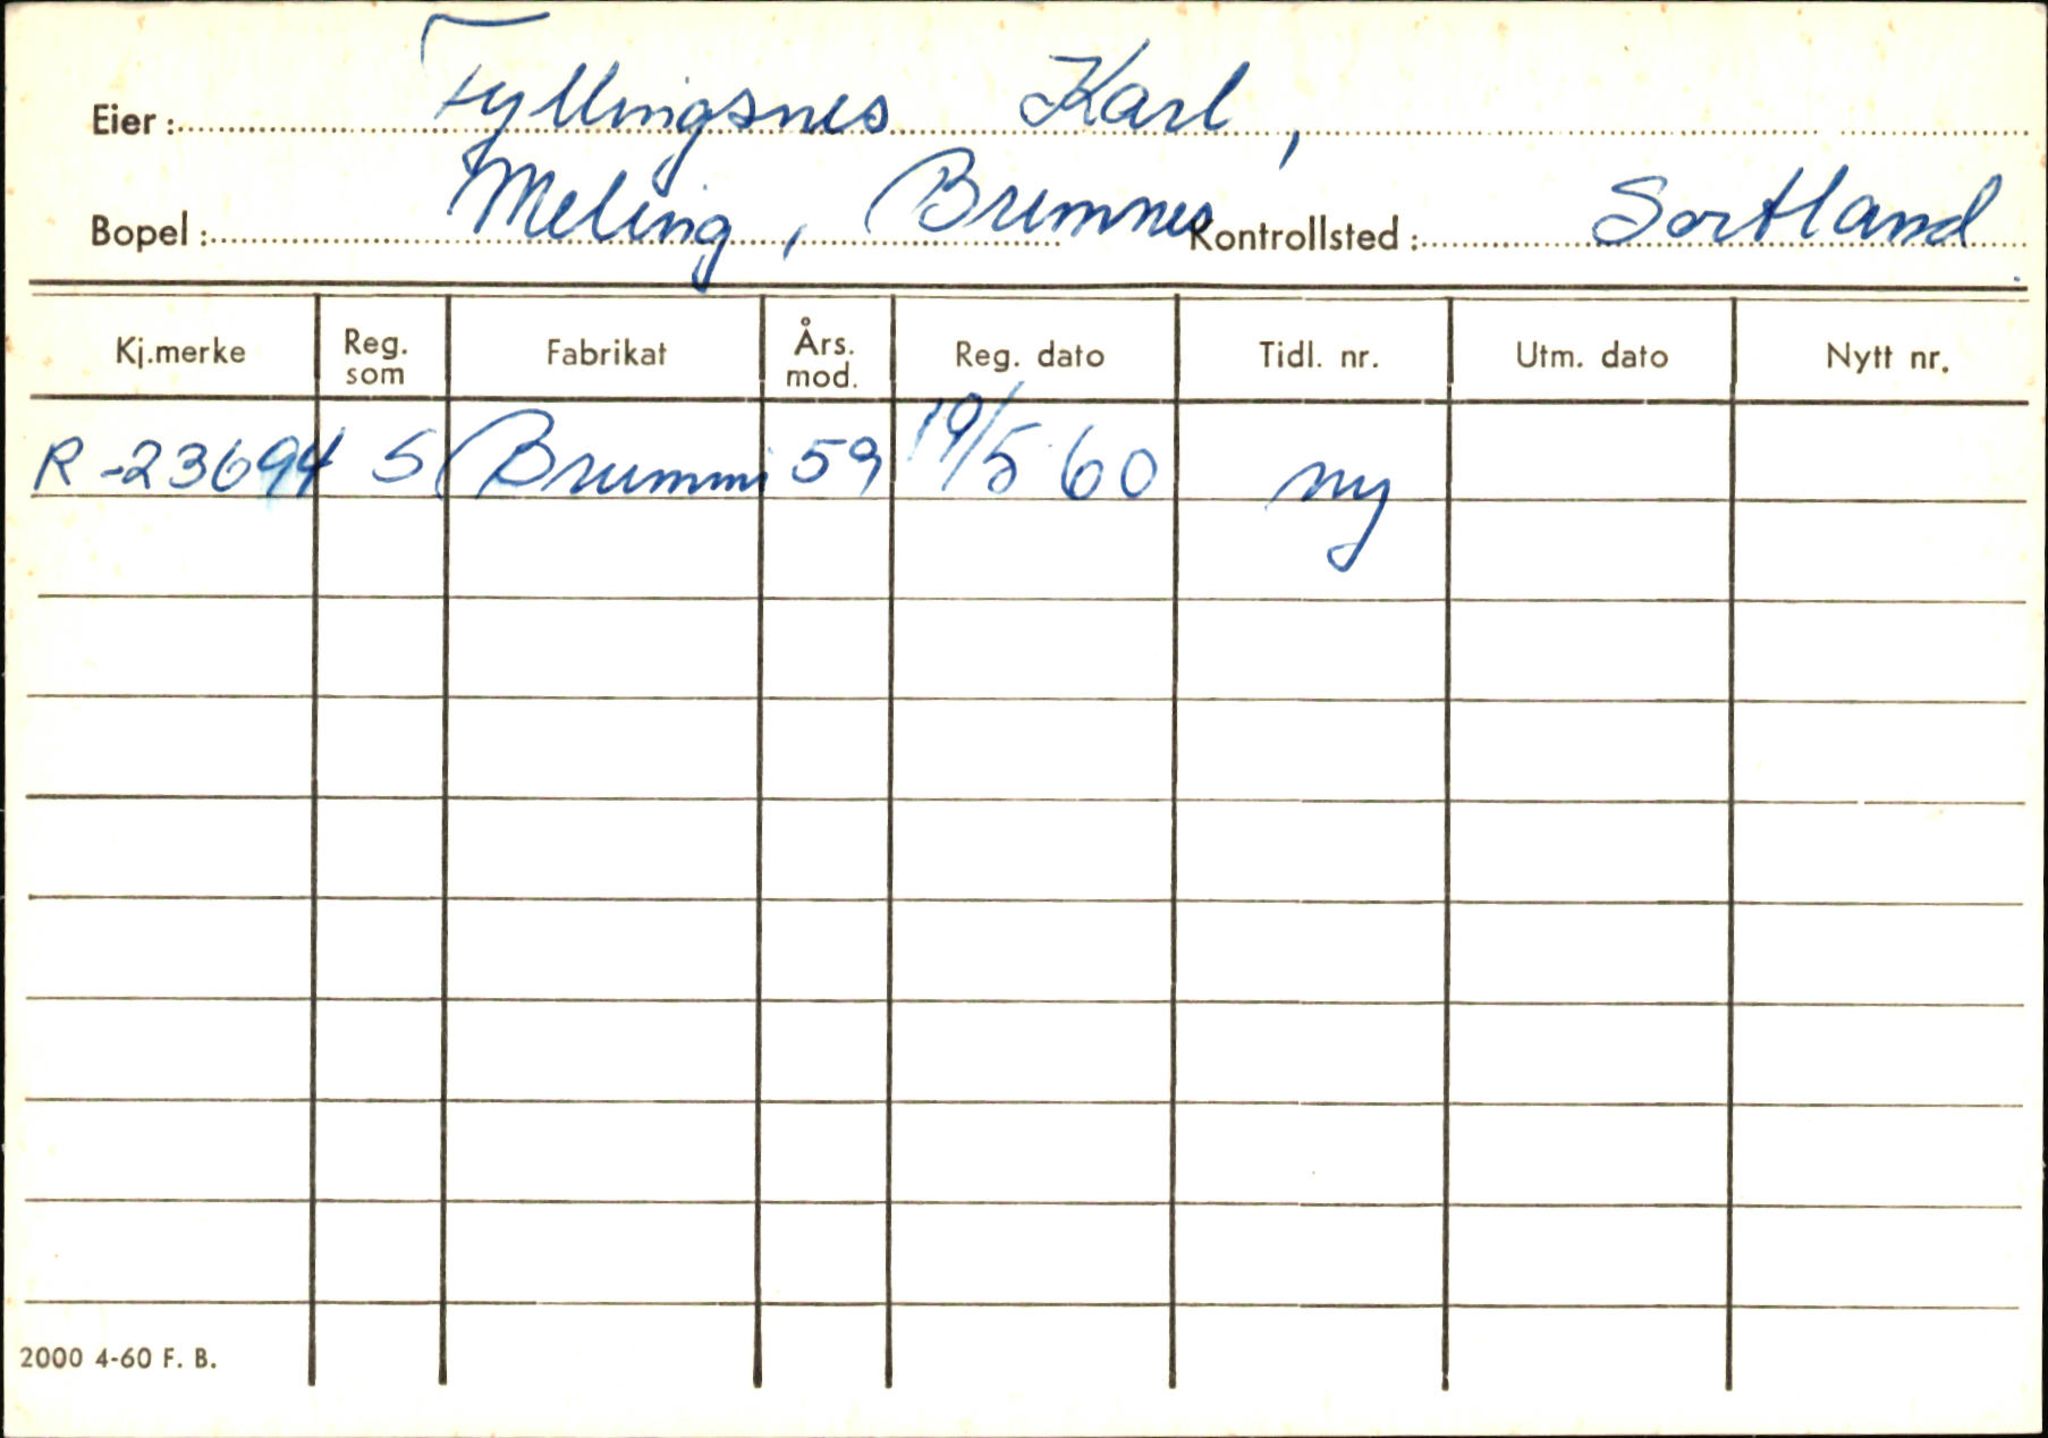 Eier: Fyllingsnes Karl,
Bopel: Meling, Bremnes Kontrollsted: Sortland
Kj.merke Reg. som Fabrikat Års. mod. Reg. dato Tidl. nr. Utm. dato Nytt nr.
R-23694 S Brummi 59 19/5 60 ny
2000 4-60 F. B.